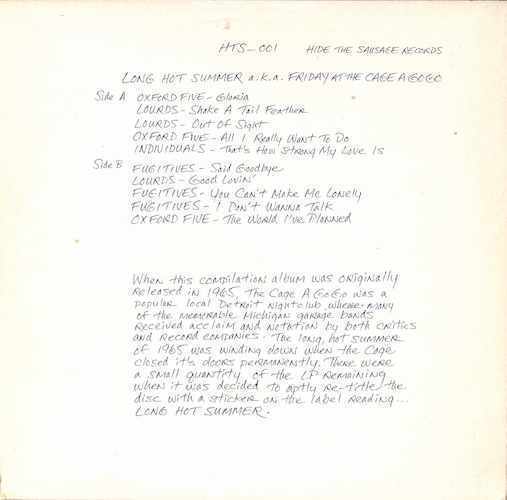 HTS-001 HIDE THE SAUSAGE RECORDS
LONG HOT SUMMER a.k.a. FRIDAY AT THE CAGE A GO GO
Side A OXFORD FIVE - Gloria
LOURDS - Shake A Tail Feather
LOURDS - Out Of Sight
OXFORD FIVE - All I Really Want To Do
INDIVIDUALS - That's How Strong My Love Is
Side B FUGITIVES - Said Goodbye
LOURDS - Good Lovin'
FUGITIVES - You Can't Make Me Lonely
FUGITIVES - I Don't Wanna Talk
OXFORD FIVE - The World I've Planned
When this compilation album was originally
released in 1965, The Cage A GoGo was a
popular local Detroit nightclub where many
of the memorable Michigan garage bands
received acclaim and notation by both critics
and record companies. The long, hot summer
of 1965 was winding down when the Cage
closed it's doors permanently. There were
a small quantity of the LP remaining
when it was decided to aptly re-title the
disc with a sticker on the label reading...
LONG HOT SUMMER.